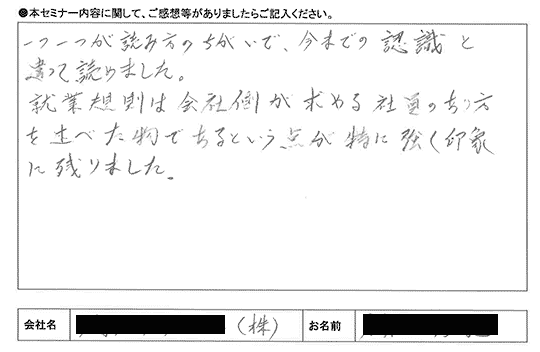 ●本セミナー内容に関して、ご感想等がありましたらご記入ください。
一つ一つが読み方のちがいで、今までの認識と
違って読めました。
就業規則は会社側が求める社員のあり方
を述べた物であるという点が特に強く印象
に残りました。
会社名 (株) お名前